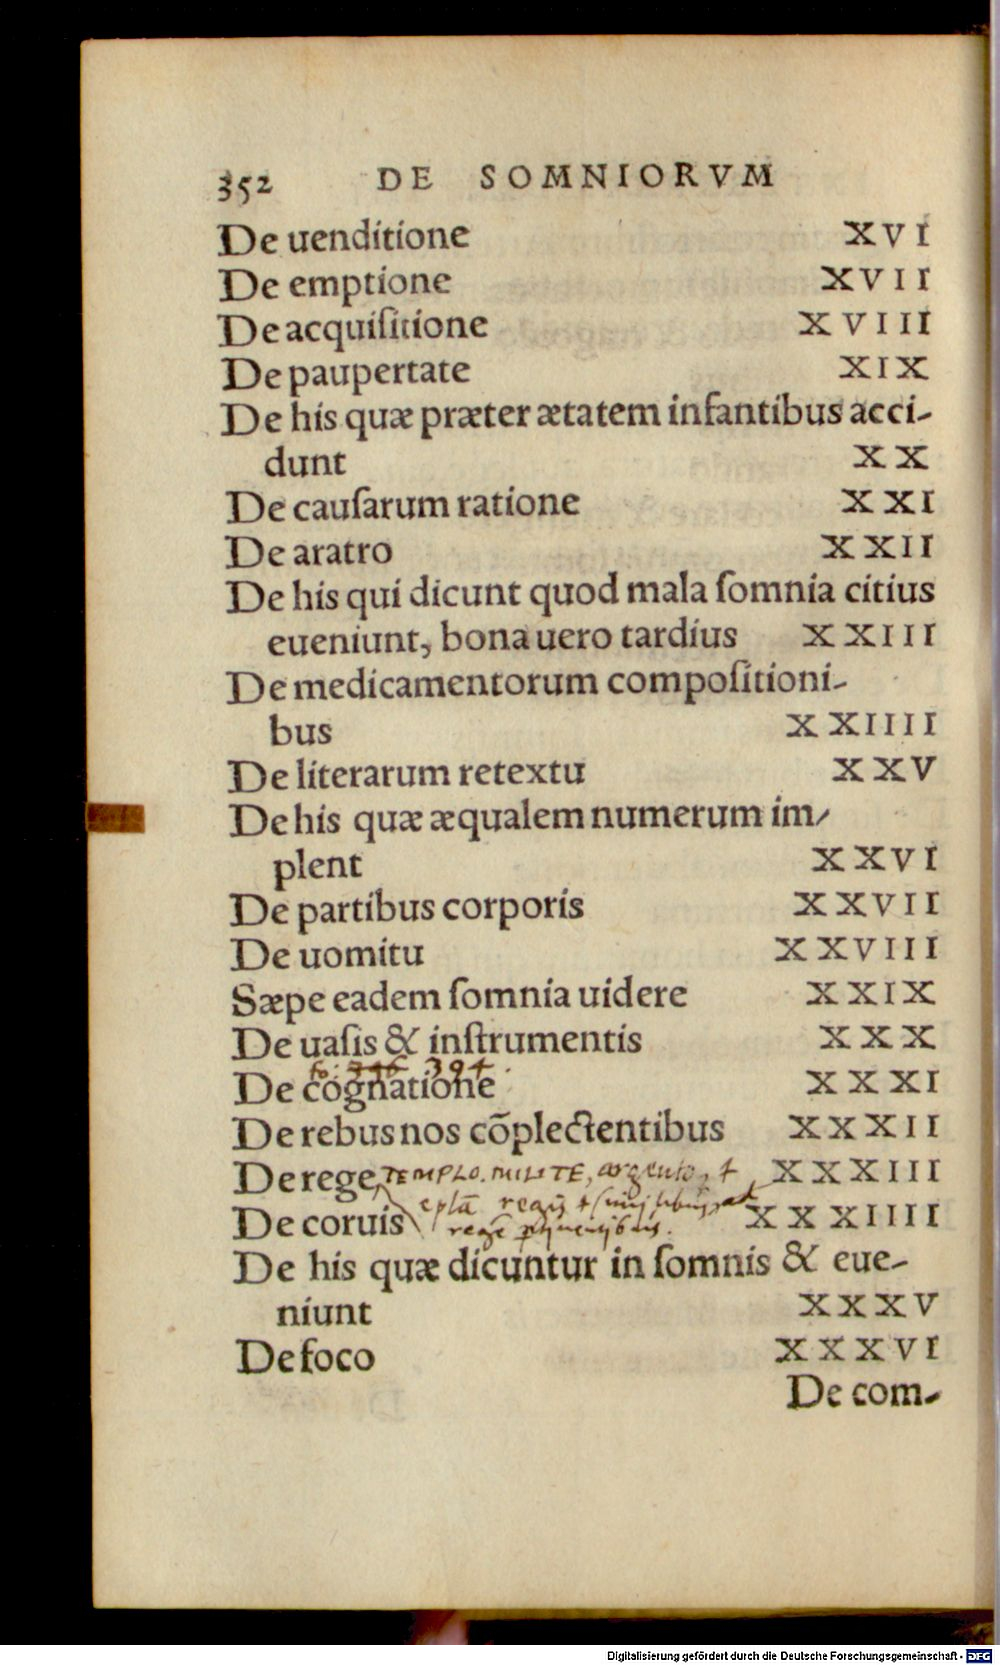 352 DE SOMNIORVM
De uenditione XVI
De emptione XVII
De acquiſitione XVIII
De paupertate XIX
De his quæ præter ætatem infantibus acci-
dunt XX
De cauſarum ratione XXI
De aratro XXII
De his qui dicunt quod mala ſomnia citius
eueniunt, bona uero tardius XXIII
De medicamentorum compoſitioni-
bus XXIIII
De literarum retextu XXV
De his quæ æqualem numerum im-
plent XXVI
De partibus corporis XXVII
De uomitu XXVIII
Sæpe eadem ſomnia uidere XXIX
De uaſis & inſtrumentis XXX
fo: 346 394.
De cognatione XXXI
De rebus nos cõplectentibus XXXII
De rege TEMPLO. MILITE, argento, + XXXIII
De coruis XXXIIII
De his quæ dicuntur in ſomnis & eue-
niunt XXXV
De foco XXXVI
De com-
Digitalisierung gefördert durch die Deutsche Forschungsgemeinschaft - DFG